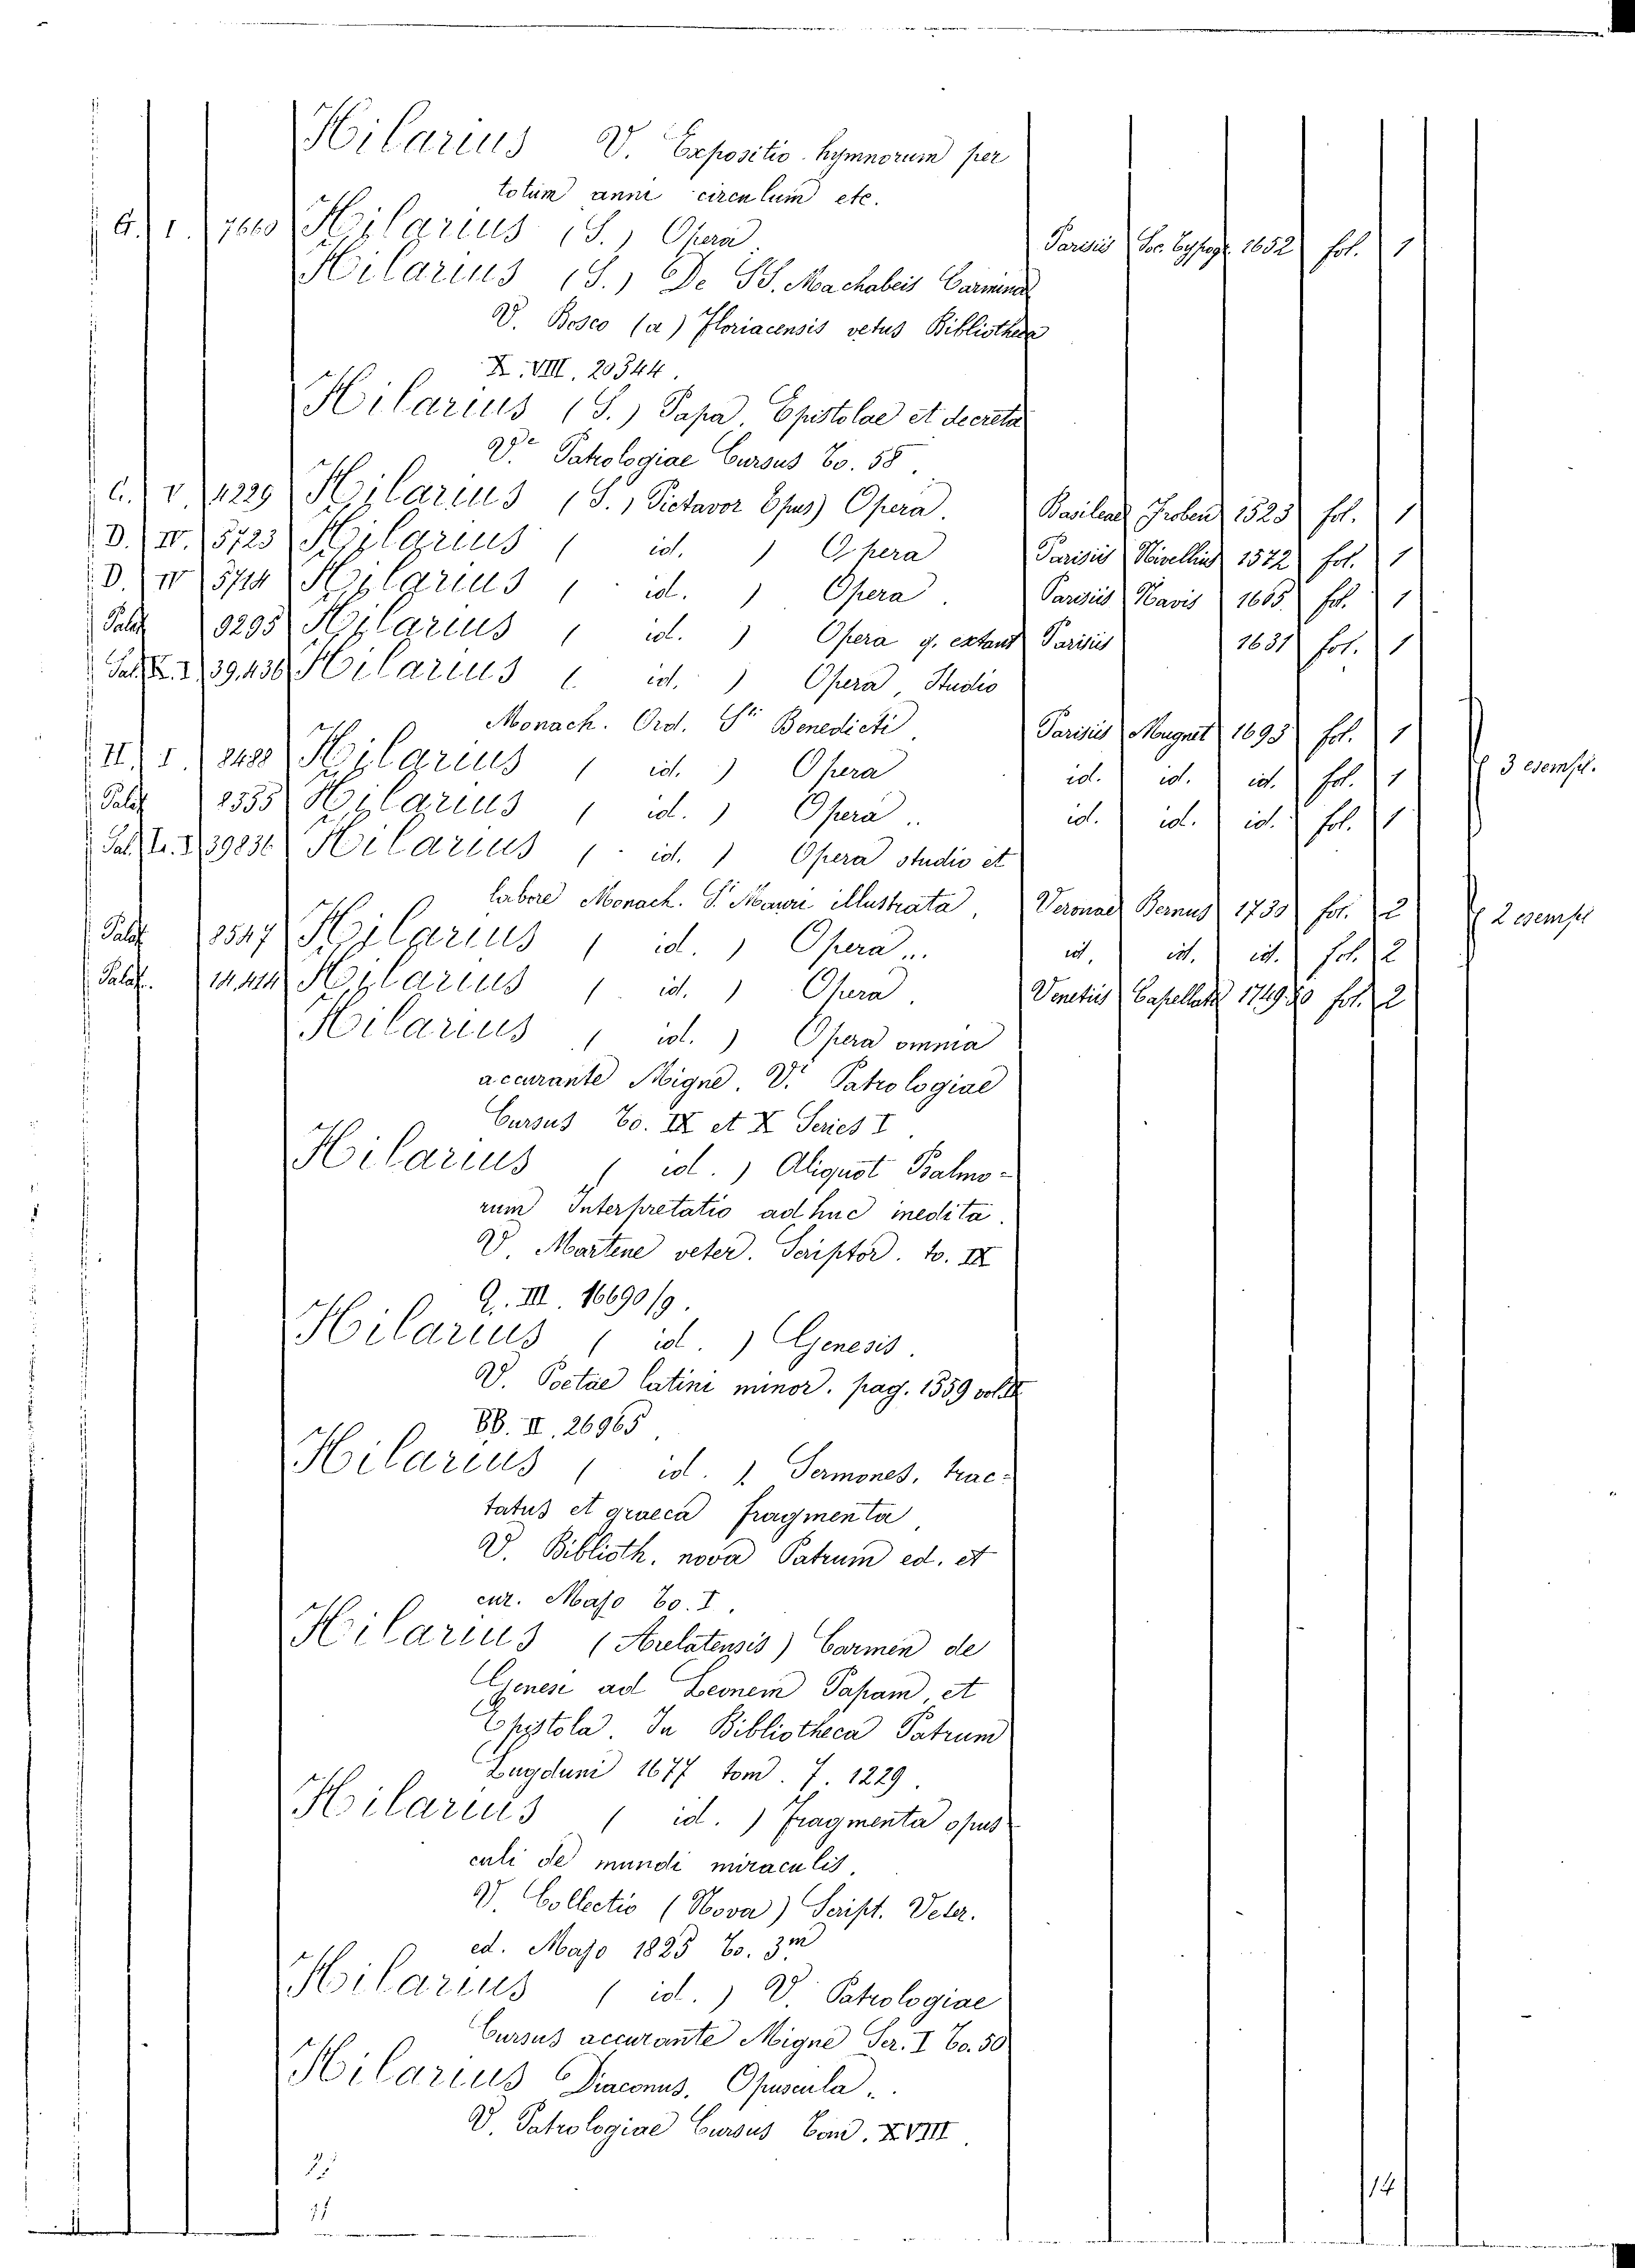 Hilarius V. Expositio hymnorum per
totum anni circulum etc.
G. I. 7660 Hilarius (S.) Opera. Parisiis Soc. Typogr. 1652 fol. 1
Hilarius (S.) De SS. Machabeis Carmina
V. Bosco (a) Floriacensis vetus Bibliotheca
X. VIII. 20344.
Hilarius (S.) Papa Epistolae et decreta
Ve Patrologiae Cursus To. 58.
C. V 4229 Hilarius (S., Pictavor Epus) Opera. Basileae Froben 1523 fol. 1
D. IV. 5723 Hilarius ( id. ) Opera Parisiis Nivellius 1572 fol. 1
D. IV 5714 Hilarius ( id. ) Opera. Parisiis Navis 1605 fol. 1
Palat 9295 Hilarius ( id. ) Opera q. extant Parisiis 1631 fol. 1
39,436 Hilarius ( id. ) Opera, Studio
Monach. Ord. Sti Benedicti. Parisiis Muguet 1693 fol. 1
II. I. 2488 Hilarius ( id. ) Opera id. id. id. fol. 1 3 esempl.
Palat 8535 Hilarius ( id. ) Opera.. id. id. id. fol. 1
39836 Hilarius ( id. ) Opera studio et
labore Monach. S. Mauri illustrata, Veronae Bernus 1730 fol. 2
Palat 8547 Hilarius ( id. ) Opera... id. id. id. fol. 2 2 esempl
Palat. 14,414 Hilarius ( id. ) Opera. Venetiis Capellatti 1749.50 fol. 2
Hilarius ( id. ) Opera omnia
accurante Migne. V. Patrologiae
Cursus To. IX et X Series I.
Hilarius ( id. ) Aliquot Psalmo-
rum Interpretatio adhuc inedita.
V. Martene veter. Scriptor. to. IX
Q. III. 16690/9.
Hilarius ( id. ) Genesis.
V. Poetae latini minor. pag. 1559 vol. II
BB. II. 26965
Hilarius ( id. ) Sermones, trac-
tatus et graeca fragmenta,
V. Biblioth. nova Patrum ed. et
cur. Majo To. I.
Hilarius (Arelatensis) Carmen de
Genesi ad Leonem Papam, et
Epistola. In Bibliotheca Patrum
Lugduni 1677 tom. 7. 1229.
Hilarius ( id. ) Fragmenta opus
culi de mundi miraculis.
V. Collectio (Nova) Script. Veter.
ed. Majo 1825 To. 3m
Hilarius ( id. ) V. Patrologiae
Cursus accurante Migne Ser. I To. 50
Hilarius Diaconus. Opuscula..
V. Patrologiae Cursus Tom. XVIII.
14